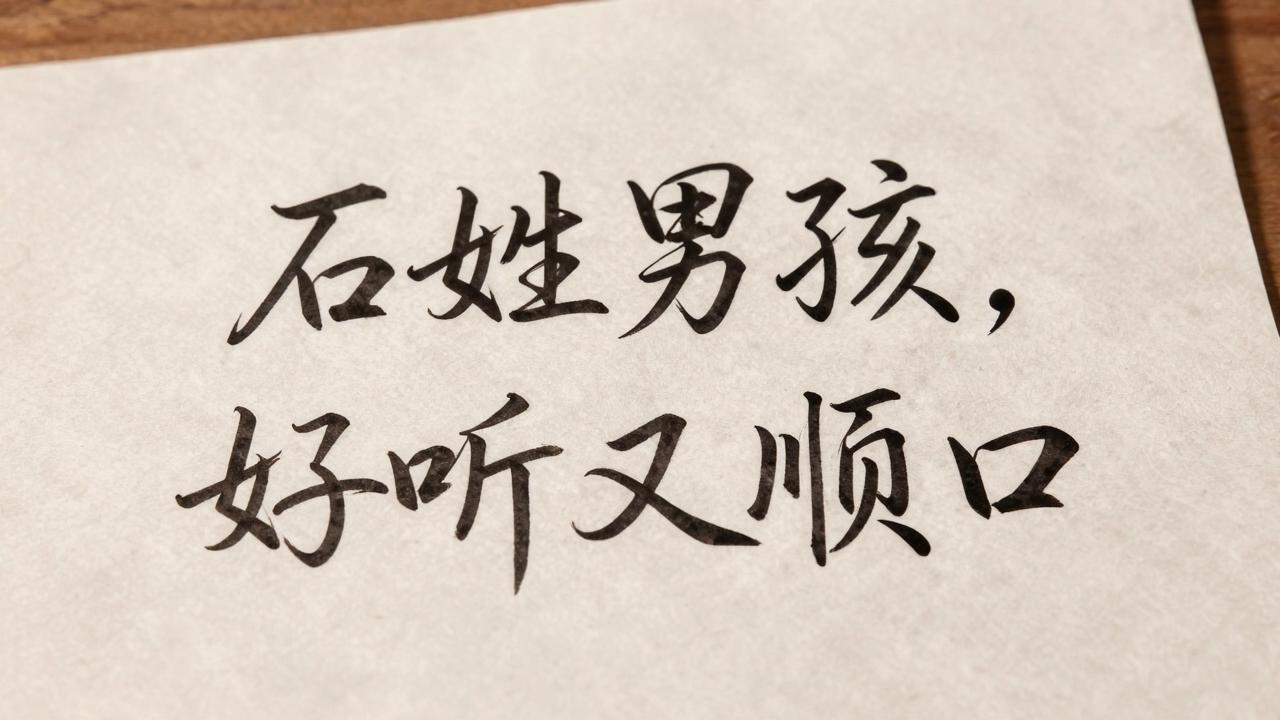 石姓男孩，
好听又顺口